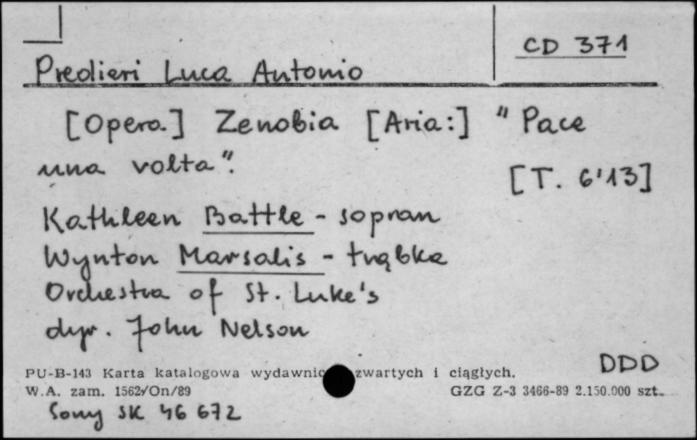 CD 371
Predieri Luca Antonio
[Opera.] Zenobia [Aria:] "Pace
una volta".
[T. 6'13]
Kathleen Battle - sopran
Wynton Marsalis - trąbka
Orchestra of St. Luke's
dyr. John Nelson
DDD
PU-B-143 Karta katalogowa wydawnic zwartych i ciągłych.
W.A. zam. 1562/On/89 GZG Z-3 3466-89 2.150.000 szt.
Sony SK 46 672